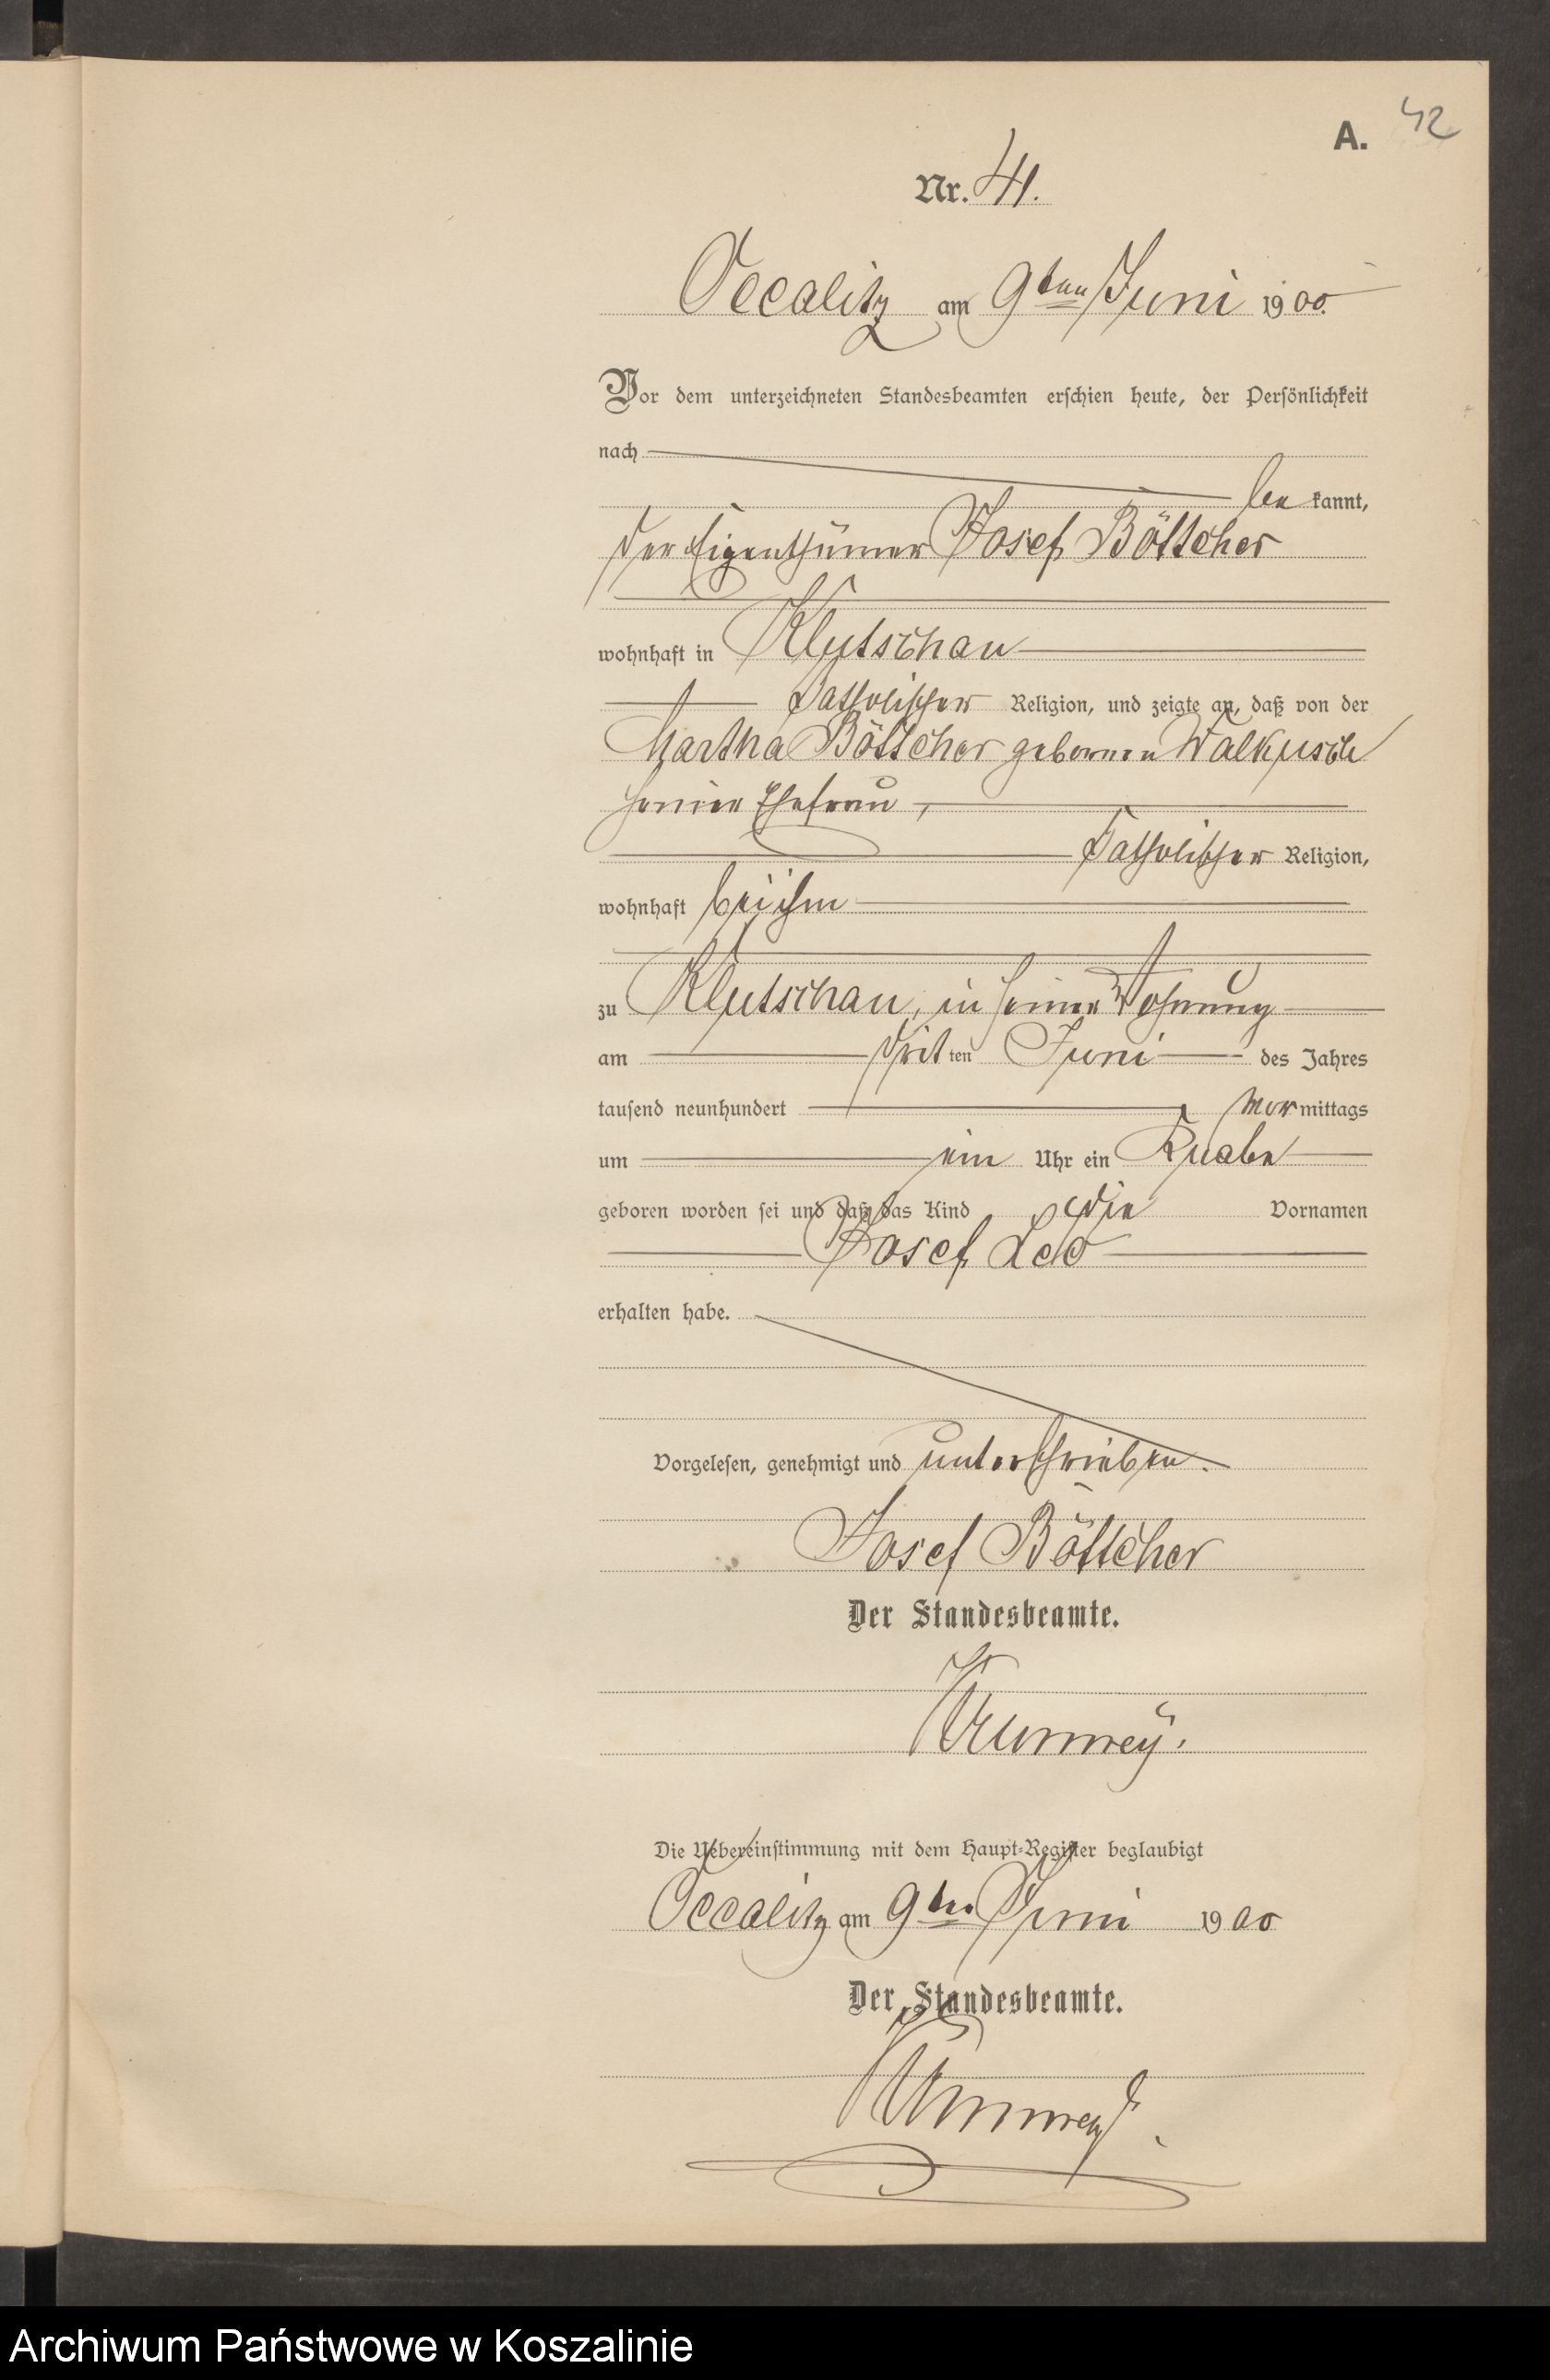 A. 42
Nr. 41.
Occalitz am 9ten Juni 1900.
Vor dem unterzeichneten Standesbeamten erschien heute, der Persönlichkeit
nach
be kannt,
der Eigenthümer Josef Böttcher
wohnhaft in Klutschau
katholischer Religion, und zeigte an, daß von der
Martha Böttcher geborenen Walkusch
seiner Ehefrau,
katholischer Religion,
wohnhaft bei ihm
zu Klutschau, in seiner Wohnung
am dritten Juni des Jahres
tausend neunhundert Vormittags
um ein Uhr ein Knabe
geboren worden sei und daß das Kind die Vornamen
Josef Leo
erhalten habe.
Vorgelesen, genehmigt und unterschrieben.
Josef Böttcher
Der Standesbeamte.
Krummrey.
Die Uebereinstimmung mit dem Haupt-Register beglaubigt
Occalitz am 9ten Juni 1900
Der Standesbeamte.
Archiwum Państwowe w Koszalinie